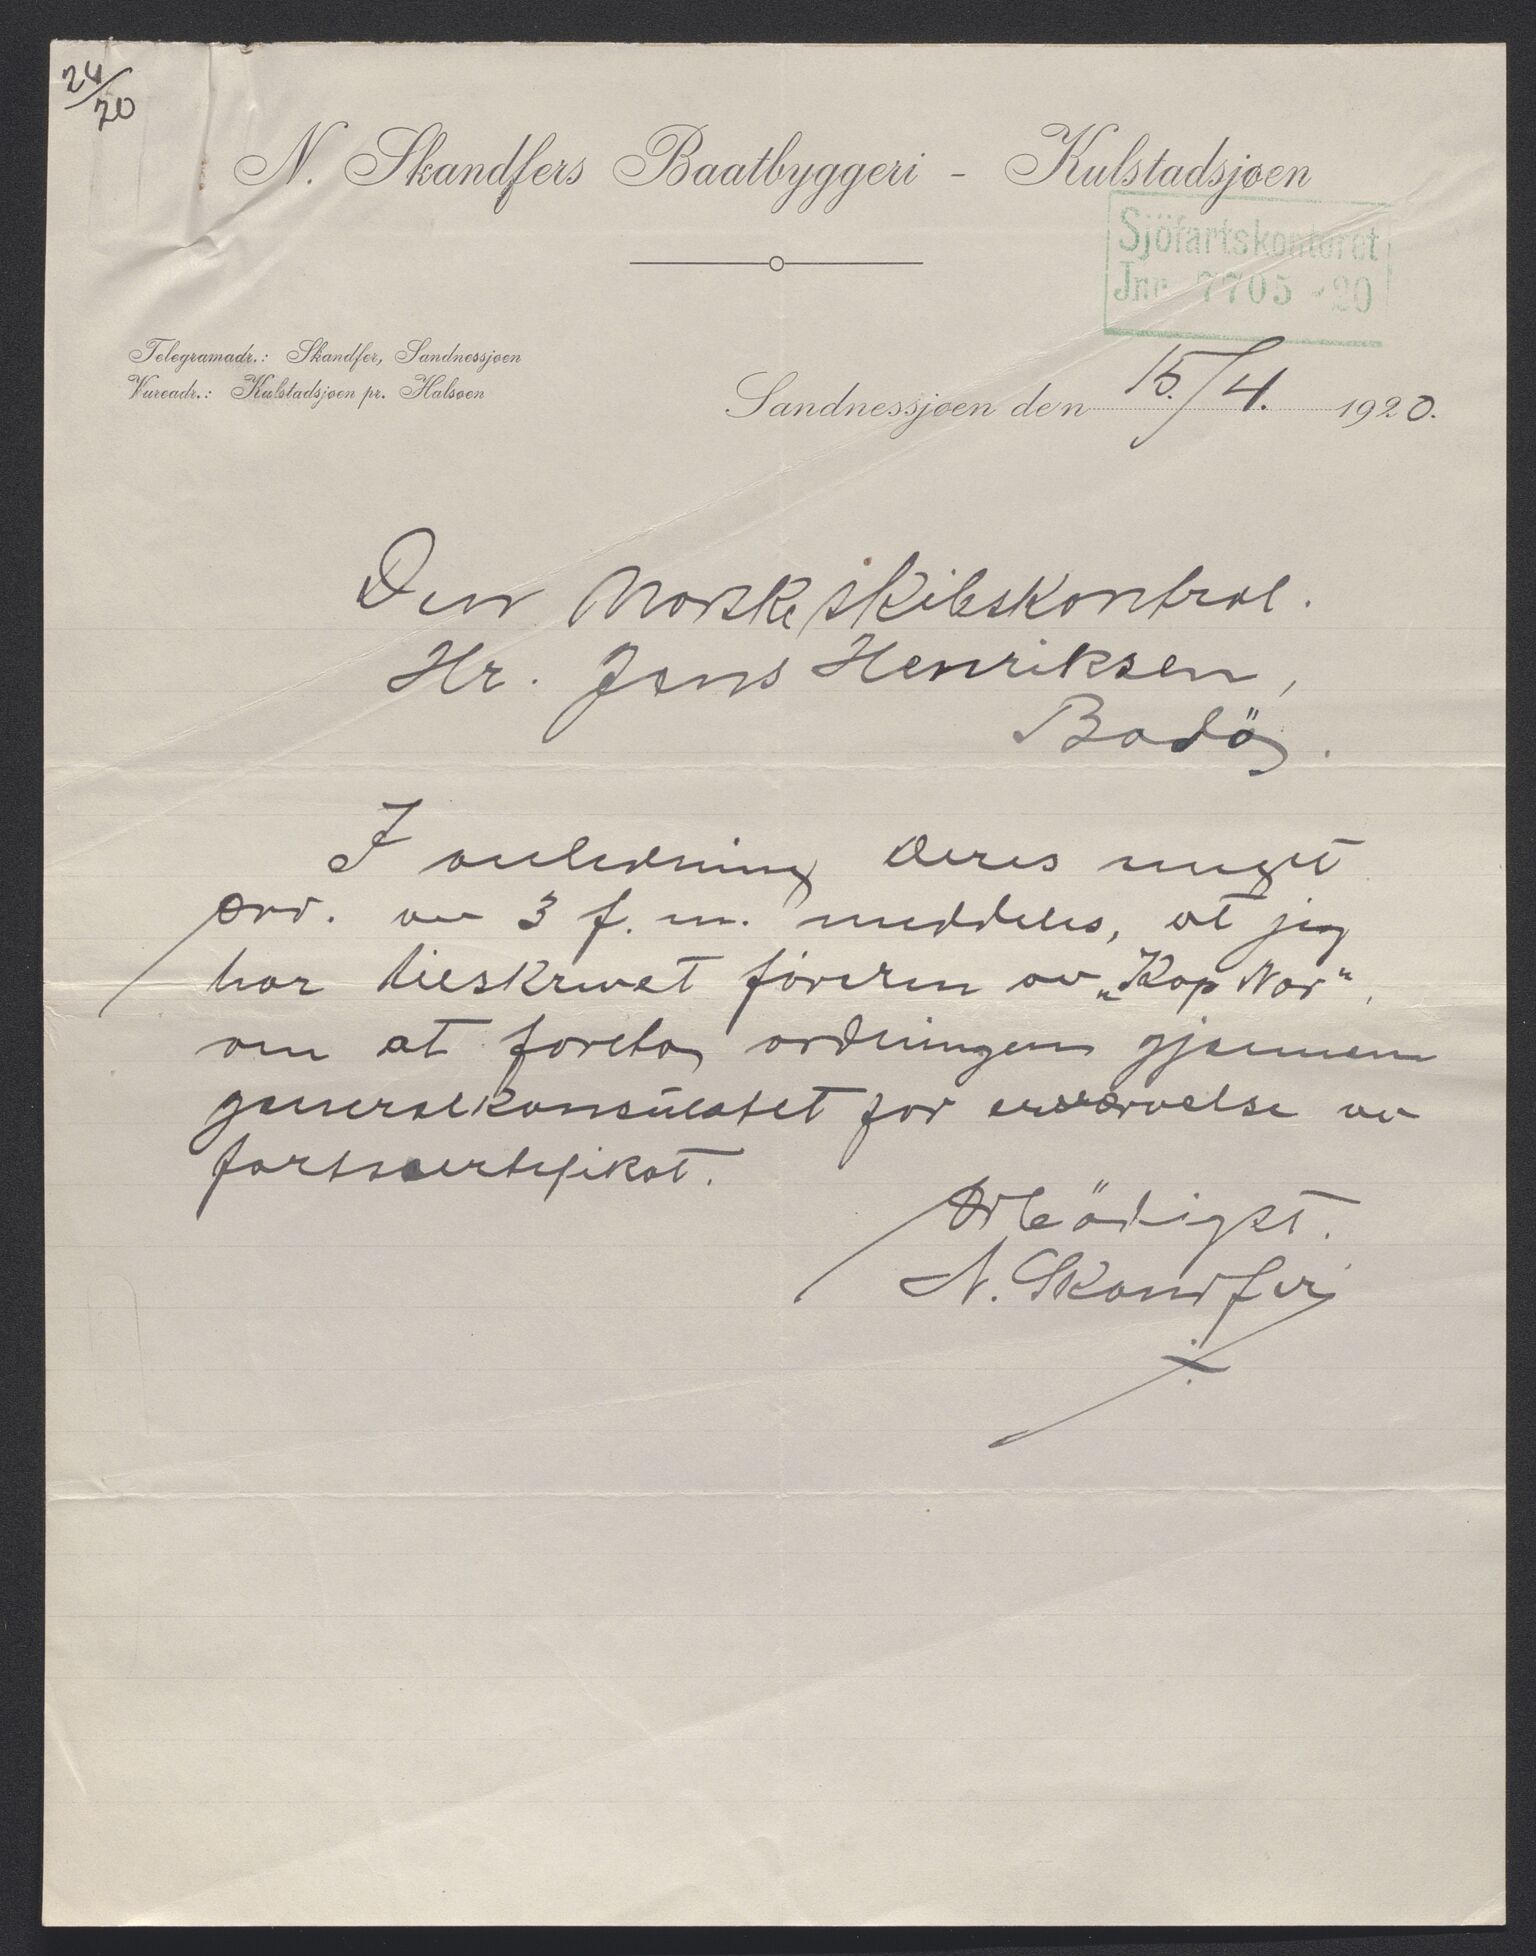 24/20
N. Skandfers Baatbyggeri - Kulstadsjøen
Sjöfartskontoret
Jnr. 7705 - 20
Telegramadr.: Skandfer, Sandnessjøen
Vareadr.: Kulstadsjøen pr. Halsøen
Sandnessjøen den 15/4. 1920.
Den Norske skibskontrol.
Hr. Jens Henriksen,
Bodö.
I anledning Deres meget
ærv. av 3 f. m. meddeles, at jeg
har tilskrevet föreren av „Kap Nor“,
om at foreta ordningen gjennem
generalkonsulatet for erværvelse av
fartscertifikat.
Ærbödigst.
N. Skandfer